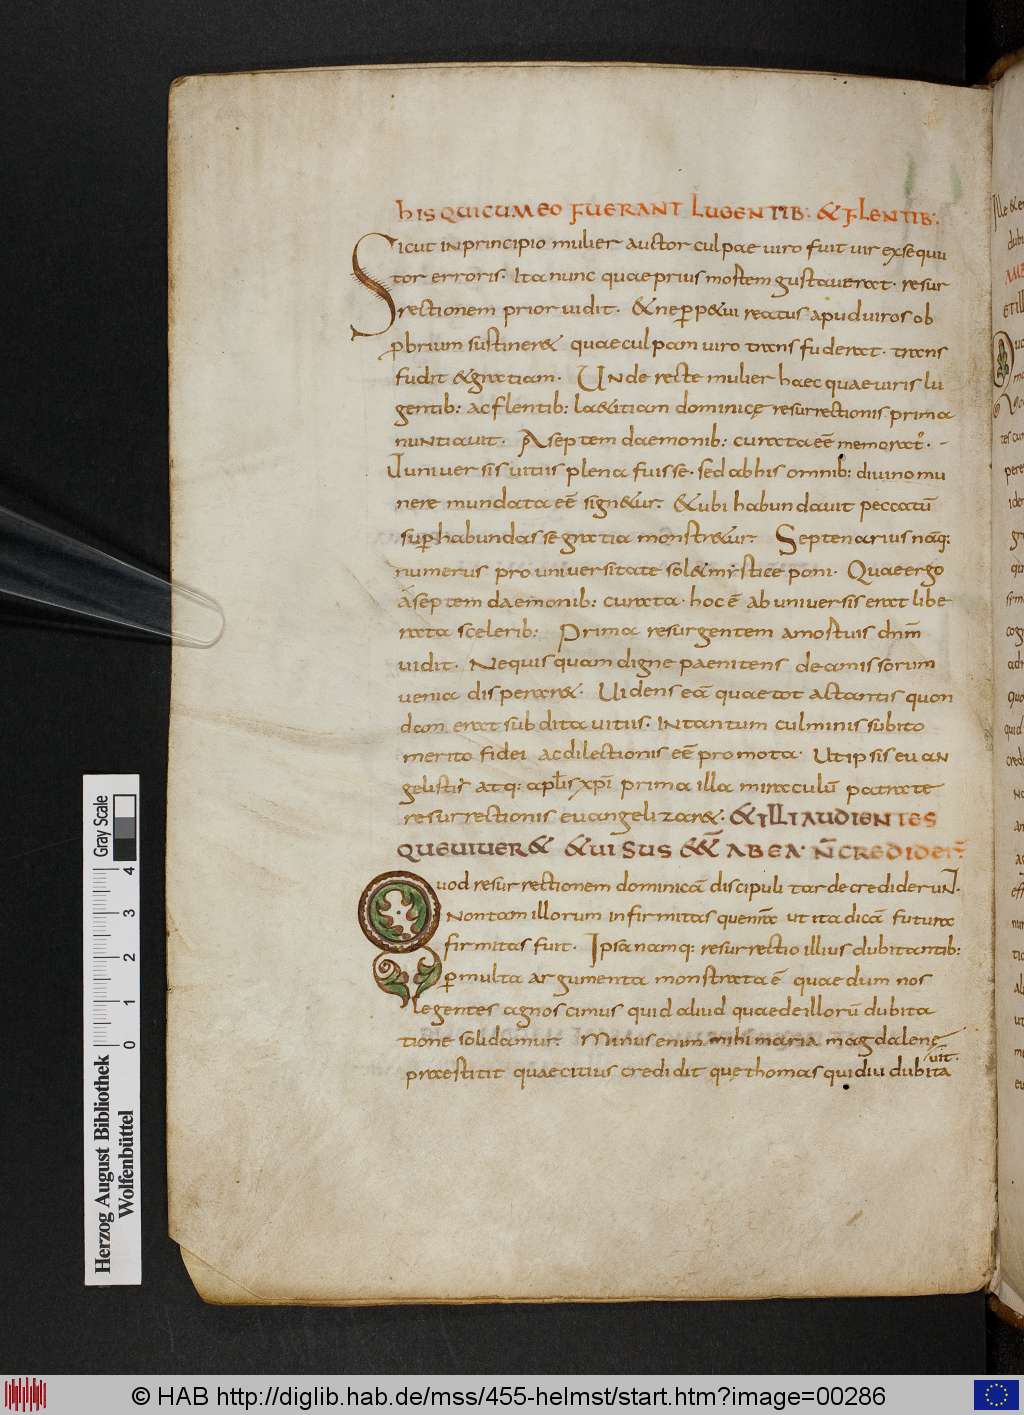 his qui cum eo fuerant lugentib: & flentib:
Sicut in principio mulier auctor culpae uiro fuit uir exsequu
tor erroris. Ita nunc quae prius mortem gustauerat. resur
rectionem prior uidit. & ne ꝑp&ui reatus apud uiros ob
ꝓbrium sustiner& quae culpam uiro transfuderat. trans
fudit & gratiam. Unde recte mulier haec quae uiris lu
gentib: ac flentib: la&itiam dominicę resurrectionis prima
nuntiauit. A septem daemonib: curata eē memorat᷑.
Ut uniuersis uitiis plena fuisse. sed ab his omnib: diuino mu
nere mundata eē signetur. & ubi habundauit peccatū
suꝑhabundasse gratia monstretur. Septenarius nāq:
numerus pro uniuersitate sol& mystice poni. Quae ergo
a septem daemonib: curata. hoc ē ab uniuersis erat libe
rata scelerib: Prima resurgentem a mortuis dnm̄
uidit. Ne quisquam digne paenitens de amissorum
uenia disperar&. Uidens eā quae tot actantis quon
dam erat subdita uitiis. in tantum culminis subito
merito fidei ac dilectionis eē promota. Ut ipsis euan
gelistis atq: apłis xp̄i prima illa miraculū patratae
resurrectionis euangelizar&. & illi audientes
que uiuer& & uisus ēēt ab ea. n̄ crediderт̄.
Quod resurrectionem dominicā discipuli tarde crediderunt.
Non tam illorum infirmitas quem n̄ra ut ita dicā futura
firmitas fuit. Ipsa namq: resurrectio illius dubitantib:
ꝑ multa argumenta monstrata ē quae dum nos
legentes agnoscimus quid aliud quae de illorū dubita
tione solidamur. Minus enim mihi maria magdalenę
praestitit quae citius credidit quę thomas qui diu dubitauit.
Gray Scale
Herzog August Bibliothek
Wolfenbüttel
0 1 2 3 4
© HAB http://diglib.hab.de/mss/455-helmst/start.htm?image=00286